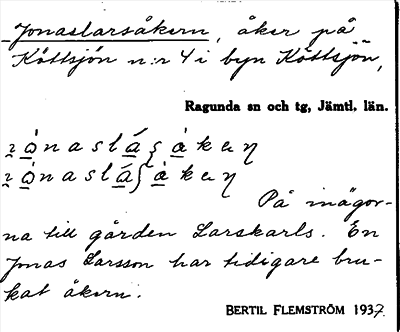 Jonaslarsåkern, åker på
Köttsjön n:r 4 i byn Köttsjön,
Ragunda sn och tg, Jämtl. län.
På inägor-
na till gården Larskarls. En
Jonas Larsson har tidigare bru-
kat åkern.
BERTIL FLEMSTRÖM 1937.